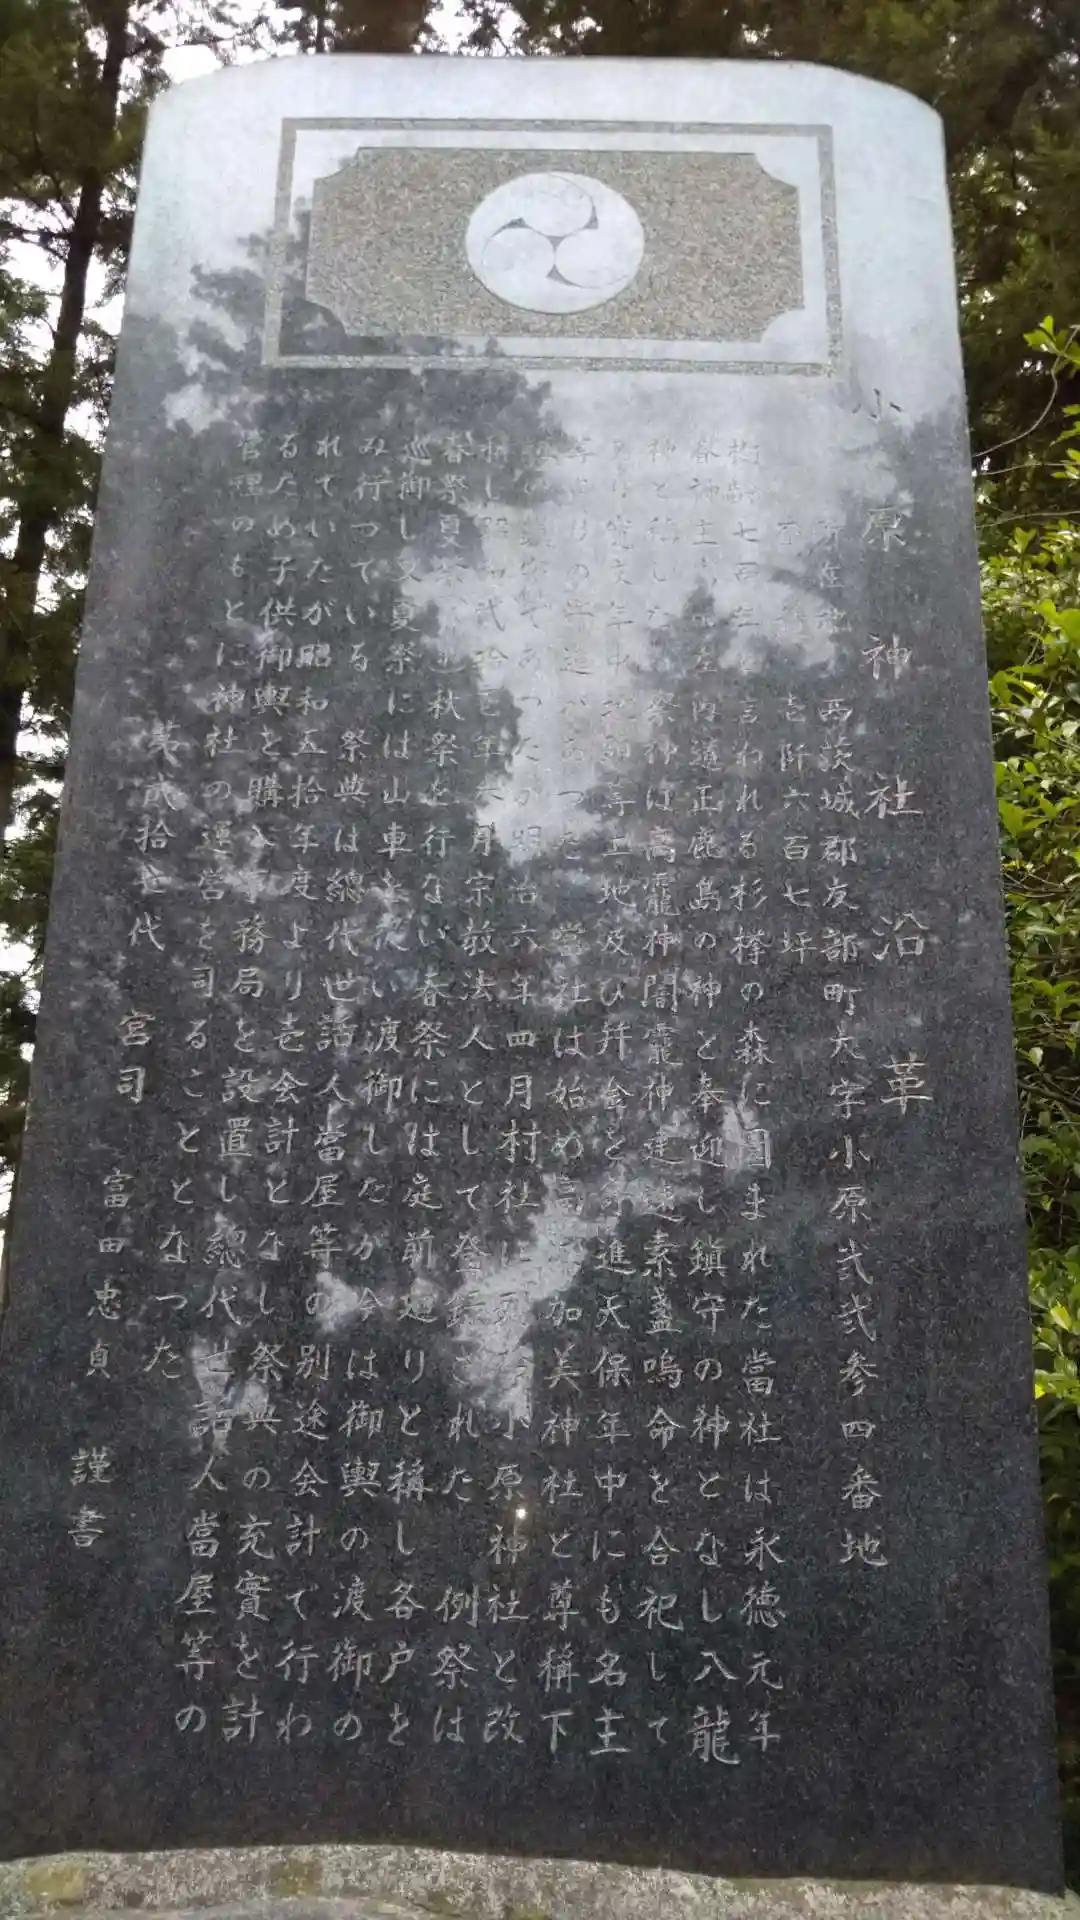 小原神社沿革
所在地 西茨城郡友部町大字小原弐弐参四番地
面積 壱阡六百七坪
樹齢七百年と言われる杉欅の森に圍まれた當社は永徳元年
春神主 左内道正鹿島の神と奉迎し鎮守の神となし八龍
神と称した 祭神は高龗神闇龗神建速素盞嗚命を合祀して
寛文年中 等土地及び并舎を寄進天保年中にも名主
等 の寄進があった 當社は始め高 加美神社と尊稱下
であったが明治六年四月村社に列 小原神社と改
称し昭和弐拾七年六月宗教法人として登録された 例祭は
春祭夏祭 秋祭を行ない春祭には庭前廻りと稱し各戸を
巡御し又夏祭には山車を 渡御したが今は御輿の渡御の
み行っている 祭典は總代世話人當屋等の別途会計で行わ
れていたが昭和五拾年度より壱会計となし祭典の充實を計
るため子供御輿を購入事務局を設置し總代世話人當屋等の
管理のもとに神社の運営を司ることとなつた
第弐拾壱代 宮司 富田忠貞 謹書